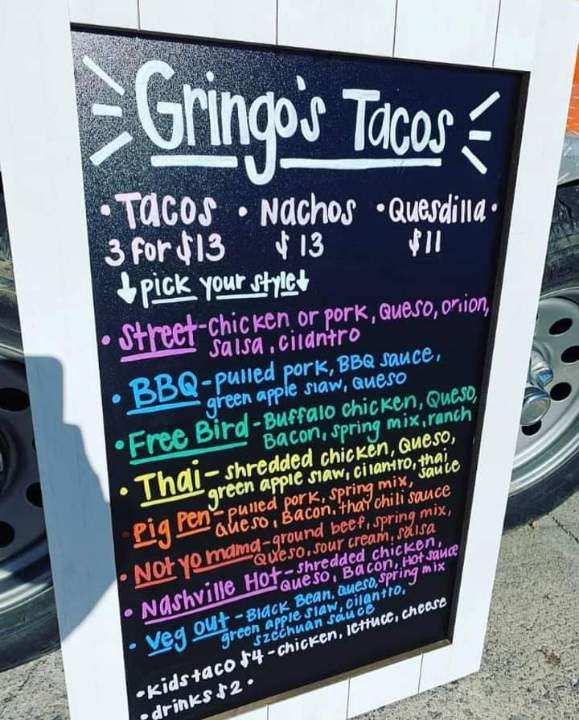 Gringo's Tacos
• Tacos • Nachos • Quesdilla •
3 for $13 $13 $11
↓ pick your style ↓
• Street - chicken or pork, Queso, onion,
salsa, cilantro
• BBQ - pulled pork, BBQ sauce,
green apple slaw, Queso
• Free Bird - Buffalo chicken, Queso,
Bacon, spring mix, ranch
• Thai - shredded chicken, Queso,
green apple slaw, cilantro, thai
sauce
• Pig Pen - pulled pork, spring mix,
Queso, Bacon, thai chili sauce
• Not yo mama - ground beef, spring mix,
Queso, sour cream, salsa
• Nashville Hot - shredded chicken,
Queso, Bacon, Hot sauce
• Veg out - Black Bean, Queso, spring mix
green apple slaw, cilantro,
szechuan sauce
• kids taco $4 - chicken, lettuce, cheese
• drinks $2 •